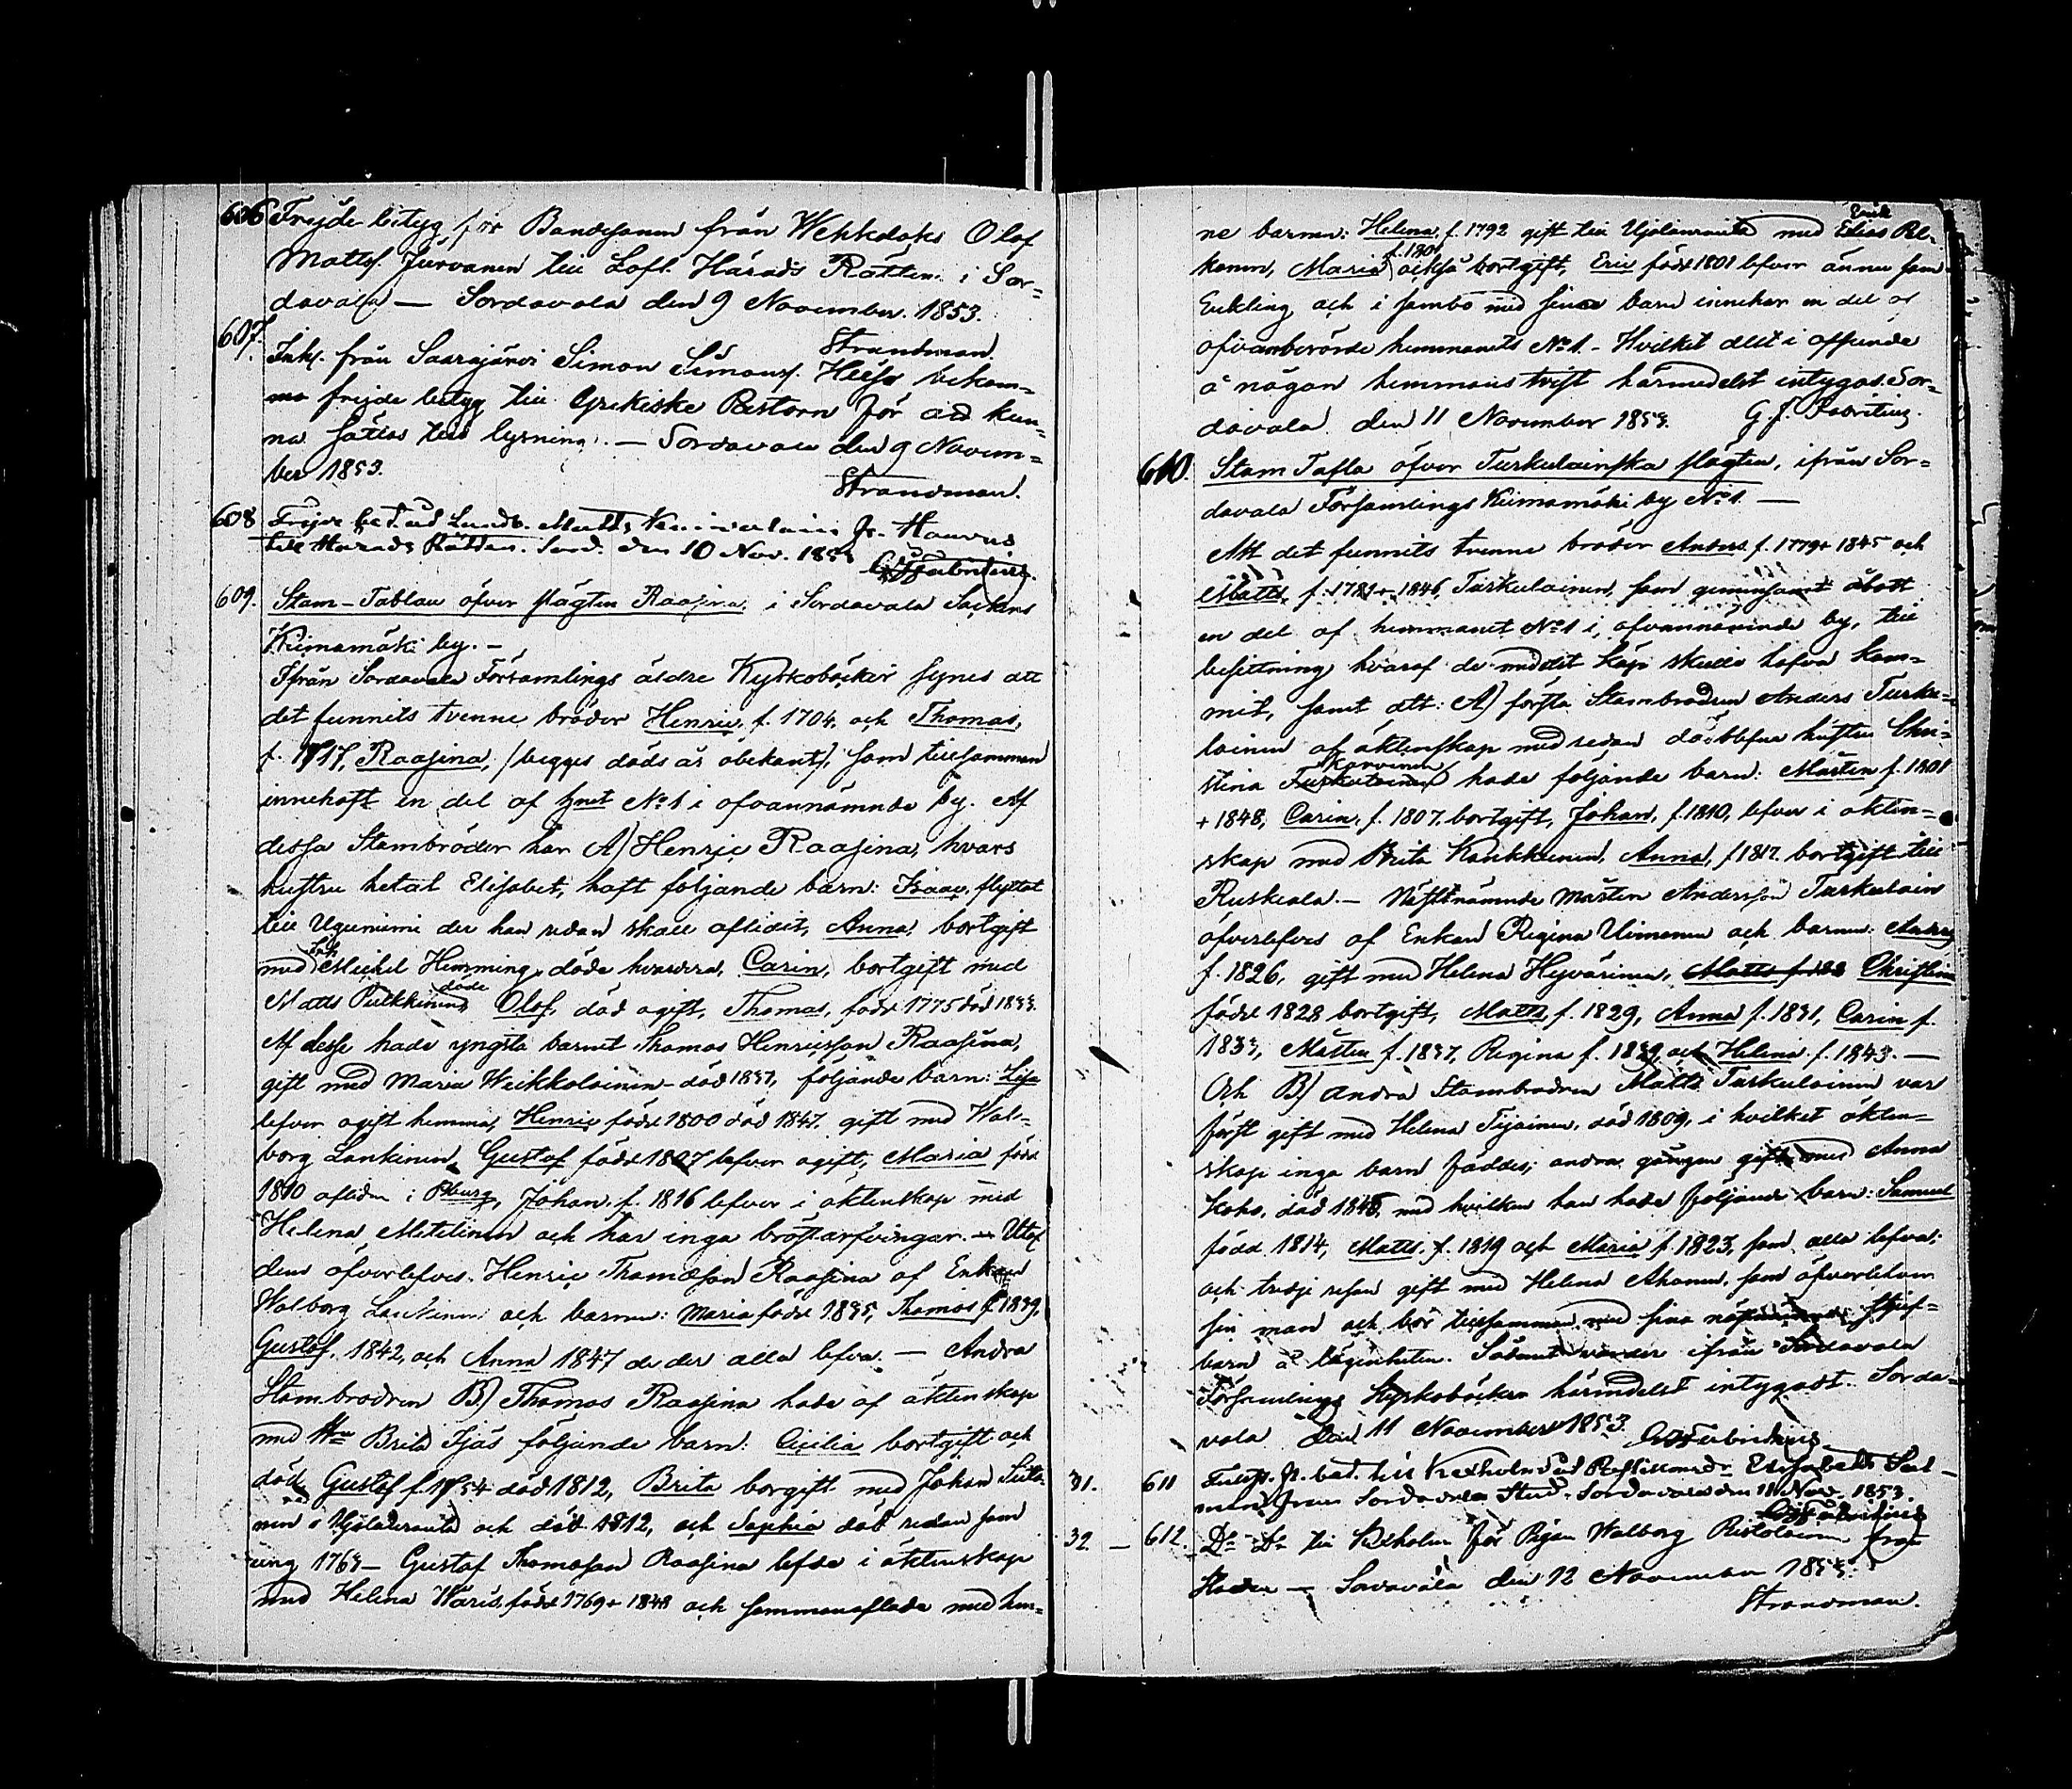 606 Frejde betyg för Bandesonen från Wehkdaks Olof
Matts. Jurvanen till Lofl. Härads Rätten i Sor=
davala — Sordavala den 9 November 1853.
Strandman.
607. Inh. från Saarajärvi Simon Simons. Hess bekom=
ma frejde betyg till Grekiske Pastorn för att kun=
na sättas till lysning. — Sordavala den 9 Novem=
ber 1853.
Strandman.
608 Frejde bet. ad Matts fr.
till Härads Rätten. Sord. den 10 Nov. 1853
609. Stam-Tablau öfver slägten Raasina i Sordavala Sockens
Kiimamäki by. —
Ifrån Sordavala Församlings äldre Kyrkoböcker synes att
det funnits tvenne bröder Henric, f. 1704, och Thomas,
f. 1717, Raasina, /begges döds år obekant/, som tillsammans
innehaft en del af hmt No 1 i ofvannämnde by. Af
dessa Stambröder har A) Henric Raasina, hvars
hustru hetat Elisabet, haft följande barn: Isaac, flyttat
till Uguniemi der han redan skall aflidit, Anna, bortgift
med Michel Hemming, döde hvardera, Carin, bortgift med
Matts Pulkkinen, döde Olof, död ogift, Thomas, född 1775 död 1833.
Af desse hade yngsta barnet Thomas Henricsson Raasina,
gift med Maria Weikkolainen - död 1837, följande barn: Lisa
lefver ogift hemma, Henric född 1800 död 1847 gift med Wal=
borg Lankinen, Gustaf född 1807 lefver ogift, Maria född
1810 afliden i Pburg, Johan f. 1816 lefver i äktenskap med
Helena Mitilinen och har inga bröstarfvingar. — Utaf
dem öfverlefves Henric Thomasson Raasina af Enkan
Walborg Lankinen och barnen: Maria född 1835, Thomas f 1839,
Gustaf 1842, och Anna 1847 de der alla lefva. — Andra
Stambrodren B) Thomas Raasina hade af äktenskap
med Hu Brita Tjäs följande barn: Cicilia bortgift och
död, Gustaf f. 1754 död 1812, Brita borgift med Johan
nen i och död 1812, och Sophia död redan som
ung 1763 — Gustaf Thomasson Raasina lefde i äktenskap
med Helena Waris född 1769 + 1848 och sammanaflade med hen=
ne barnen: Helena, f. 1792 gift till Ujolanranta med Erik Elias Pel=
konen, Maria f. 180 också bortgift, Eric född 1801 lefver ännu som
Enkling och i sambo med sina barn innehar en del af
ofvanberörde hemmanets No 1. — Hvilket allt i afseende
å någon hemmans tvist härmedelst intygas. Sor=
davala den 11 November 1853. G. J. Fabritius.
610. Stam Tafla öfver Turkulainska slägten, ifrån Sor=
davala Församlings Kiimamäki by No 1. —
Att det funnits tvenne bröder Anders f. 1779 + 1845 och
Matts, f. 1781 + 1846, Turkulainen, som gemensamt åbott
en del af hemmanet No 1 i ofvannämnde by, till
besittning hvaraf de medelst köp skulle hafva kom=
mit, samt att: A) första Stambrodren Anders Turku=
lainen af äktenskap med redan död blefna hustru Chri=
stina Karvinen Turkulainen hade följande barn: Mårten f. 1801
+ 1848, Carin, f. 1807, bortgift, Johan, f. 1810, lefver i äkten=
skap med Brita Kaukkunen, Anna, f 1817 bortgift till
Ruskiala. — Nästnämnde Mårten Andersson Turkulain
öfverlefves af Enkan Regina Uimonen och barnen: Anders
f. 1826, gift med Helena Hyvärinen, Matts f. 188 Christina
född 1828 bortgift, Matts f. 1829, Anna f. 1831, Carin f.
1833, Mårten f. 1837, Regina f. 1839, och Helena f. 1843. —
Och B) Andra Stambrodren Matts Turkulainen var
först gift med Helena Tijainen, död 1809, i hvilket äkten=
skap inga barn föddes; andra gången gift med Anna
Koho, död 1845, med hvilken han hade följande barn: Samuel
född 1814, Matts, f. 1819 och Maria f. 1823, som alla lefva;
och tredje resan gift med Helena Ahonen, som öfverlefver
sin man och bor tillsammans med sina styf=
barn å lägenheten. Sådant varder ifrån Sordavala
Församlings Kyrkoböcker härmedelst intygadt. Sorda=
vala den 11 November 1853.
31. 611 fr. bet. till Kexholm
från Sordavala Stad. Sordavala den 11 Nov. 1853
32. — 612. Do Do till Kexholm för Pigan Walborg Ristolainen från
Staden — Sordavala den 12 November 1853.
Strandman.